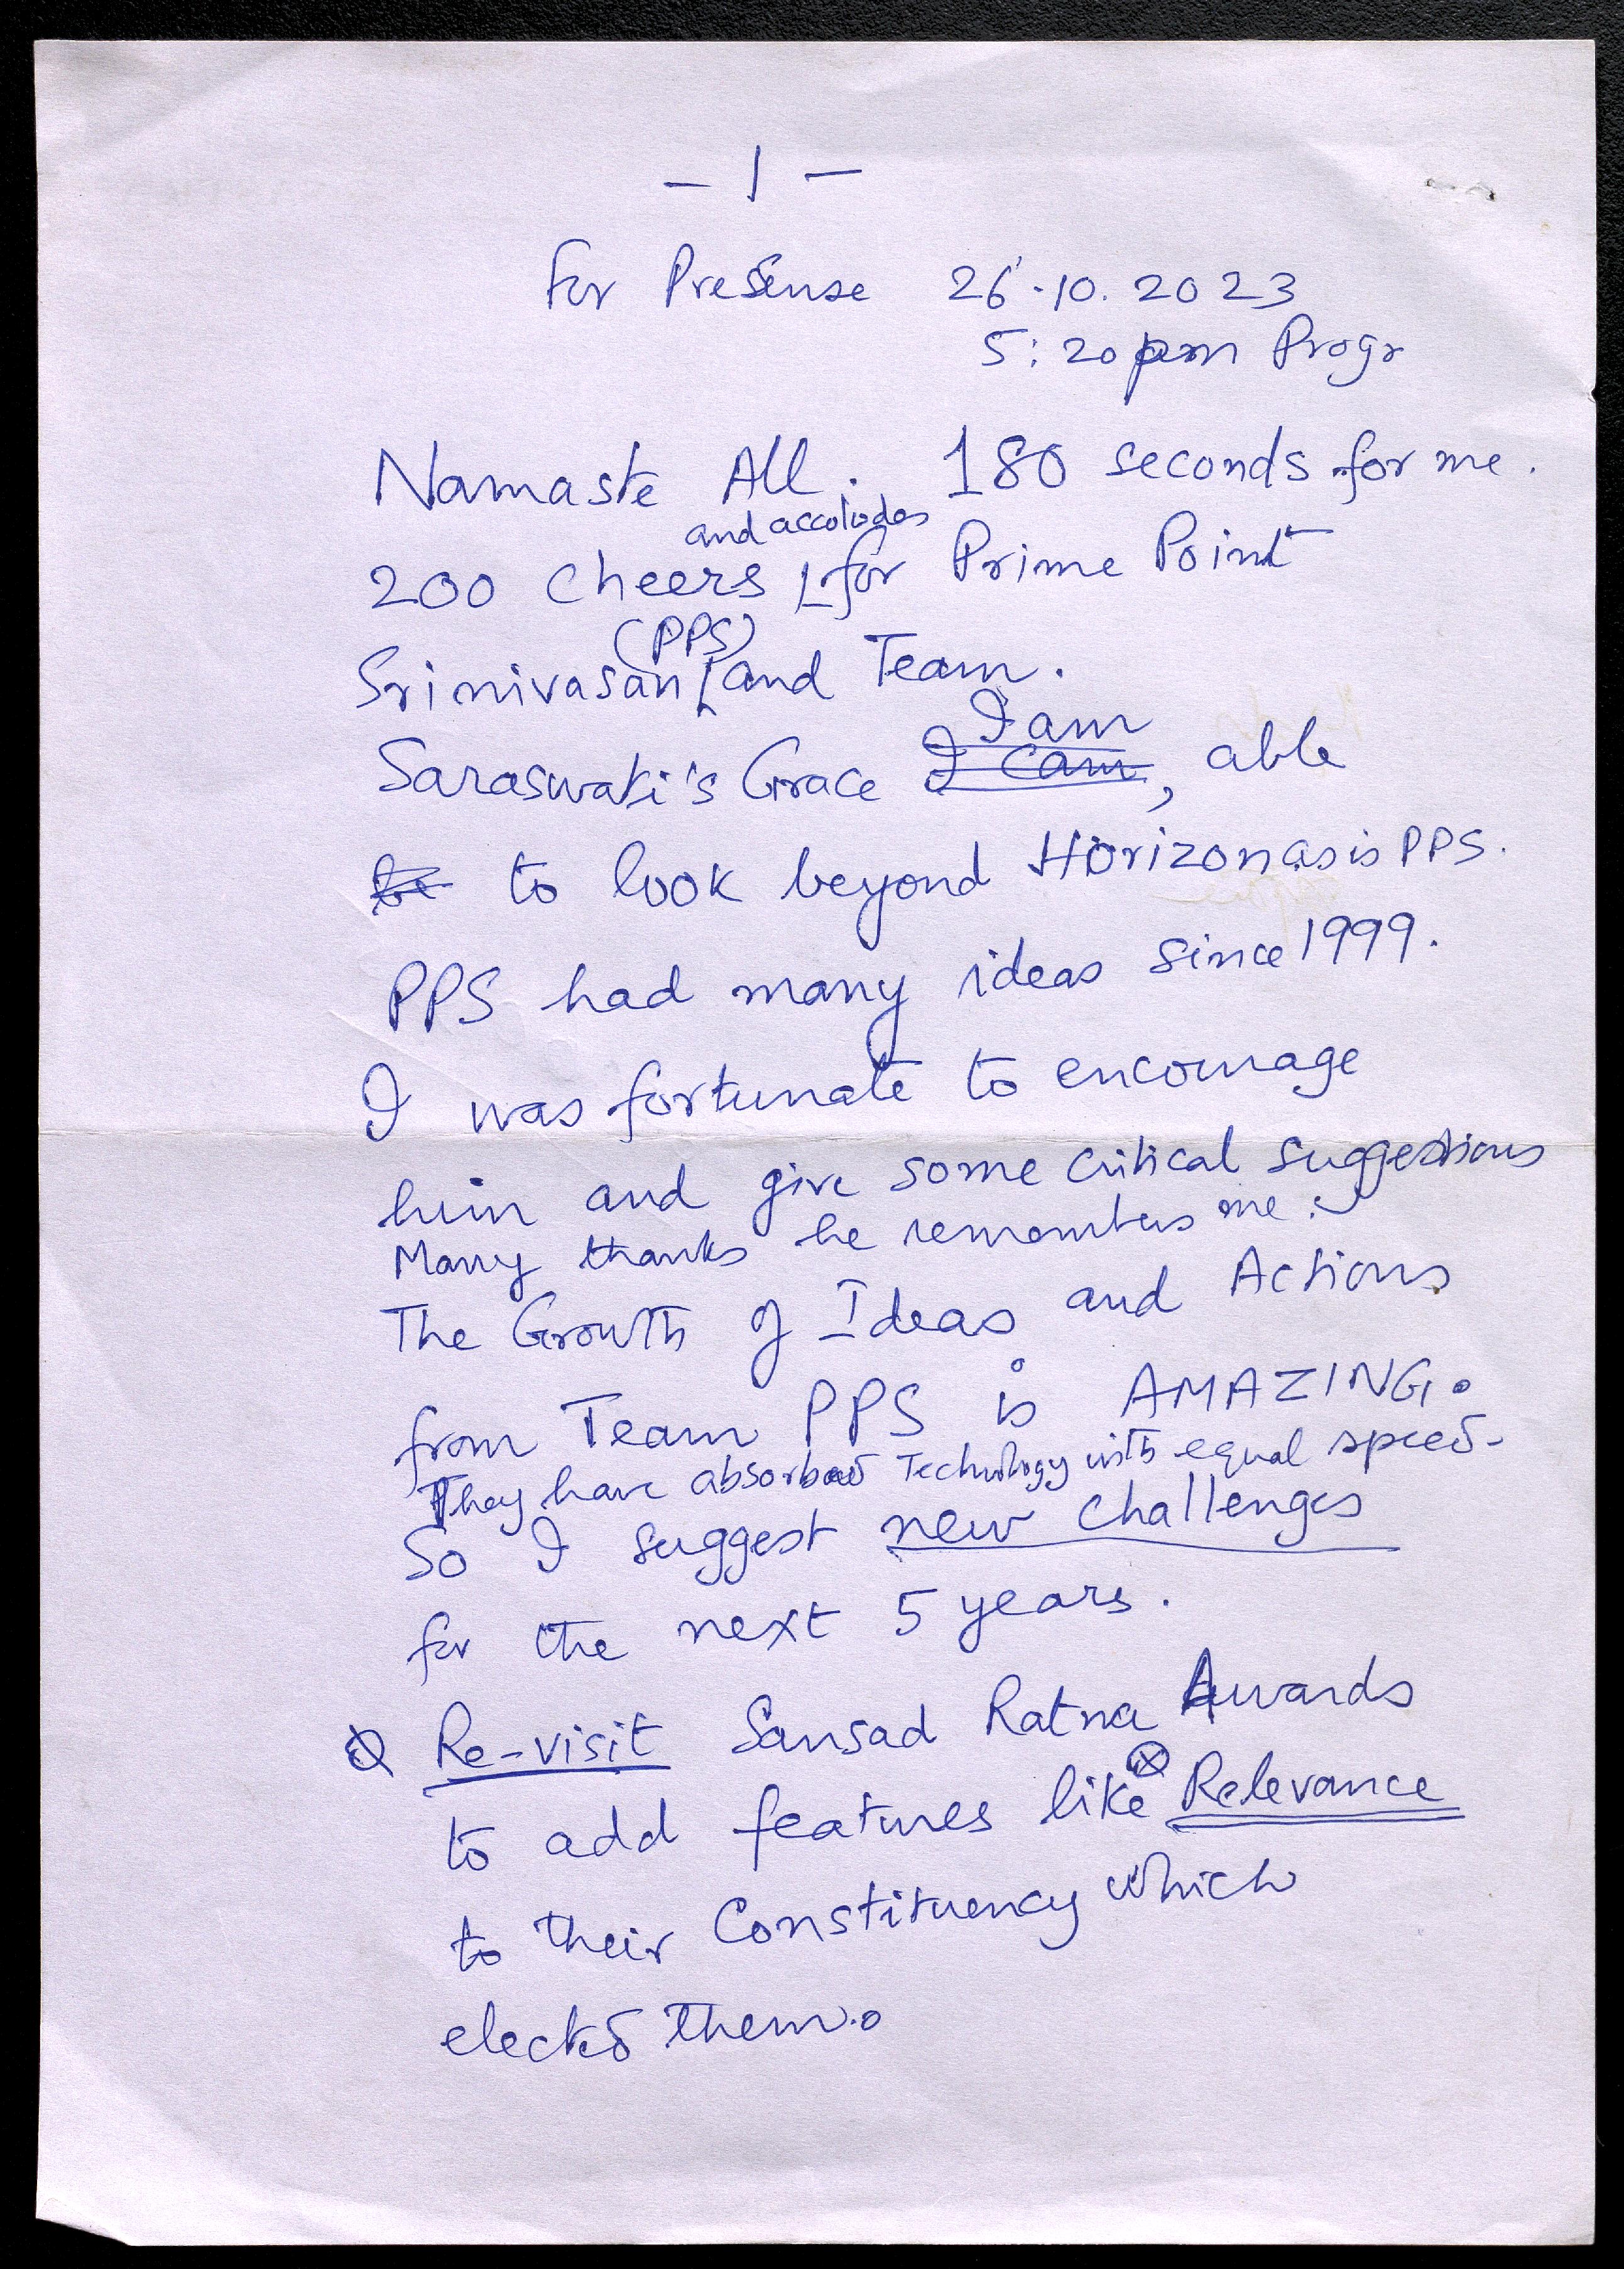 - 1 -
for PreSense 26.10.2023
5:20pm Progr
Namaste All. 180 seconds for me.
and accolades
200 Cheers for Prime Point
(PPS)
Srinivasan and Team.
I am
Saraswati's Grace I can, able
to to look beyond Horizon as is PPS.
PPS had many ideas since 1999.
I was fortunate to encourage
him and give some critical suggestions
Many thanks he remembers me.
The Growth of Ideas and Actions
from Team PPS is AMAZING.
They have absorbed Technology with equal speed.
So I suggest new challenges
for the next 5 years.
Re-visit Sansad Ratna Awards
to add features like ⊗ Relevance
to their Constituency which
elected them.